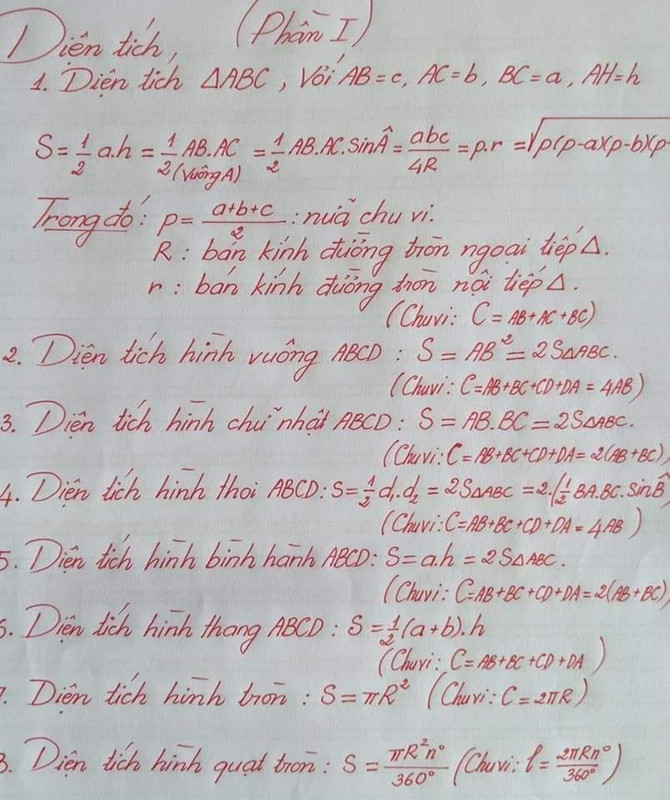 Diện tích, (Phần I)
1. Diện tích ΔABC, Với AB=c, AC=b, BC=a, AH=h
S=1/2 a.h = 1/2 AB.AC (Vuông A) = 1/2 AB.AC.Sin Â = abc/4R = p.r = √p(p-a)(p-b)(p-
Trong đó: p= a+b+c/2 : nửa chu vi.
R : bán kính đường tròn ngoại tiếp Δ.
r : bán kính đường tròn nội tiếp Δ.
(Chu vi: C = AB+AC+BC)
2. Diện tích hình vuông ABCD : S = AB² = 2SΔABC.
(Chu vi: C=AB+BC+CD+DA = 4AB)
3. Diện tích hình chữ nhật ABCD : S = AB.BC = 2SΔABC.
(Chu vi: C=AB+BC+CD+DA= 2(AB+BC)
4. Diện tích hình thoi ABCD: S=1/2 d₁.d₂ = 2SΔABC = 2.(1/2 BA.BC.Sin B̂
(Chu vi: C=AB+BC+CD+DA = 4AB)
5. Diện tích hình bình hành ABCD: S=a.h = 2SΔABC.
(Chu vi: C=AB+BC+CD+DA=2(AB+BC)
6. Diện tích hình thang ABCD : S=1/2(a+b).h
(Chu vi: C=AB+BC+CD+DA)
7. Diện tích hình tròn : S=πR² (Chu vi: C=2πR)
8. Diện tích hình quạt tròn: S = πR²n°/360° (Chu vi: l = 2πRn°/360°)